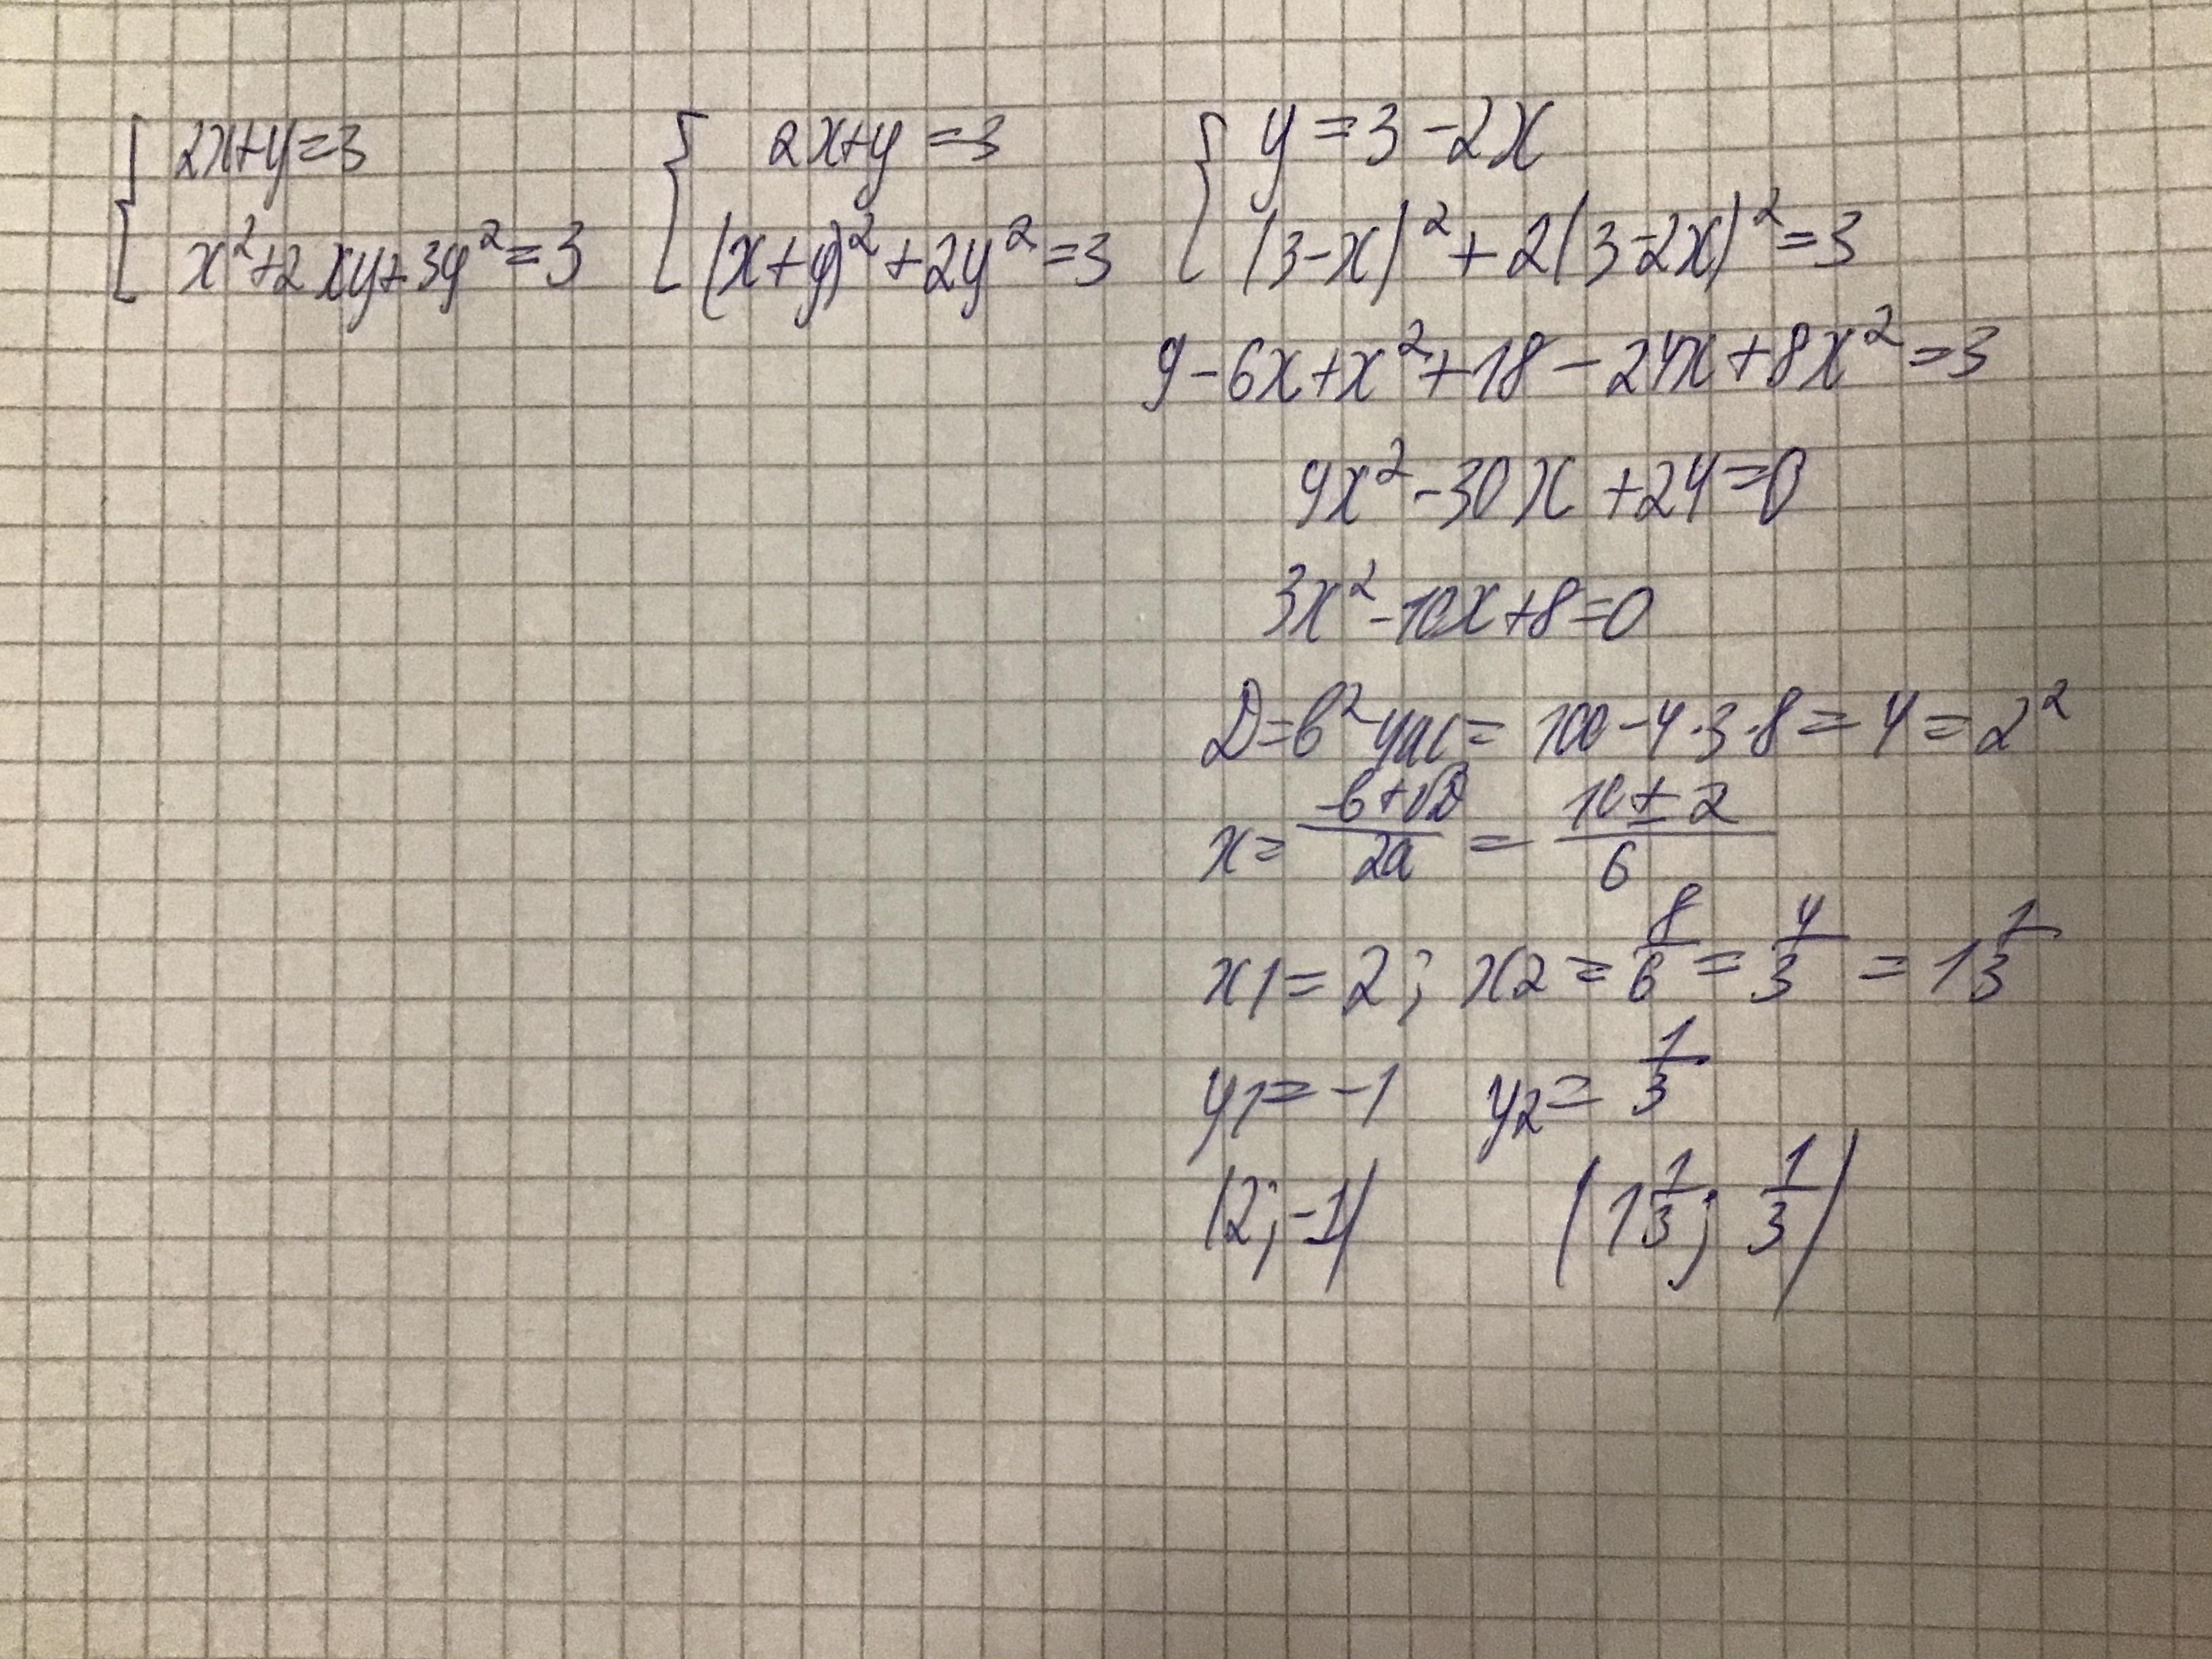 { 2x+y=3
x²+2xy+3y²=3
{ 2x+y=3
(x+y)²+2y²=3
{ y=3-2x
(3-x)²+2(3-2x)²=3
9-6x+x²+18-24x+8x²=3
9x²-30x+24=0
3x²-10x+8=0
D=b²-4ac=100-4·3·8=4=2²
x=(-b+√D)/2a=(10±2)/6
x1=2; x2=8/6=4/3=1 1/3
y1=-1 y2=1/3
(2;-1) (1 1/3; 1/3)